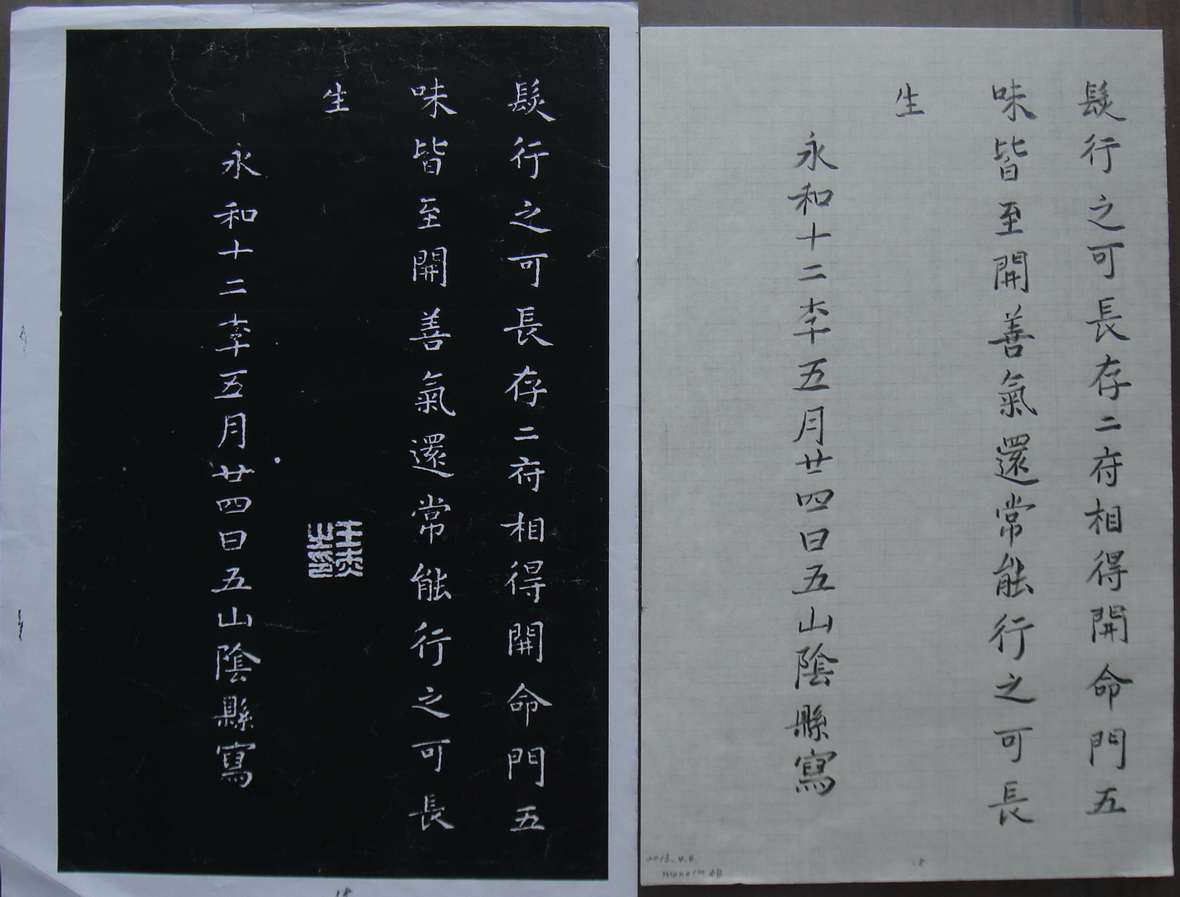 髮行之可長存二府相得開命門五
味皆至開善氣還常能行之可長
生
永和十二秊五月廿四日五山陰縣寫
18
髮行之可長存二府相得開命門五
味皆至開善氣還常能行之可長
生
永和十二秊五月廿四日五山陰縣寫
18